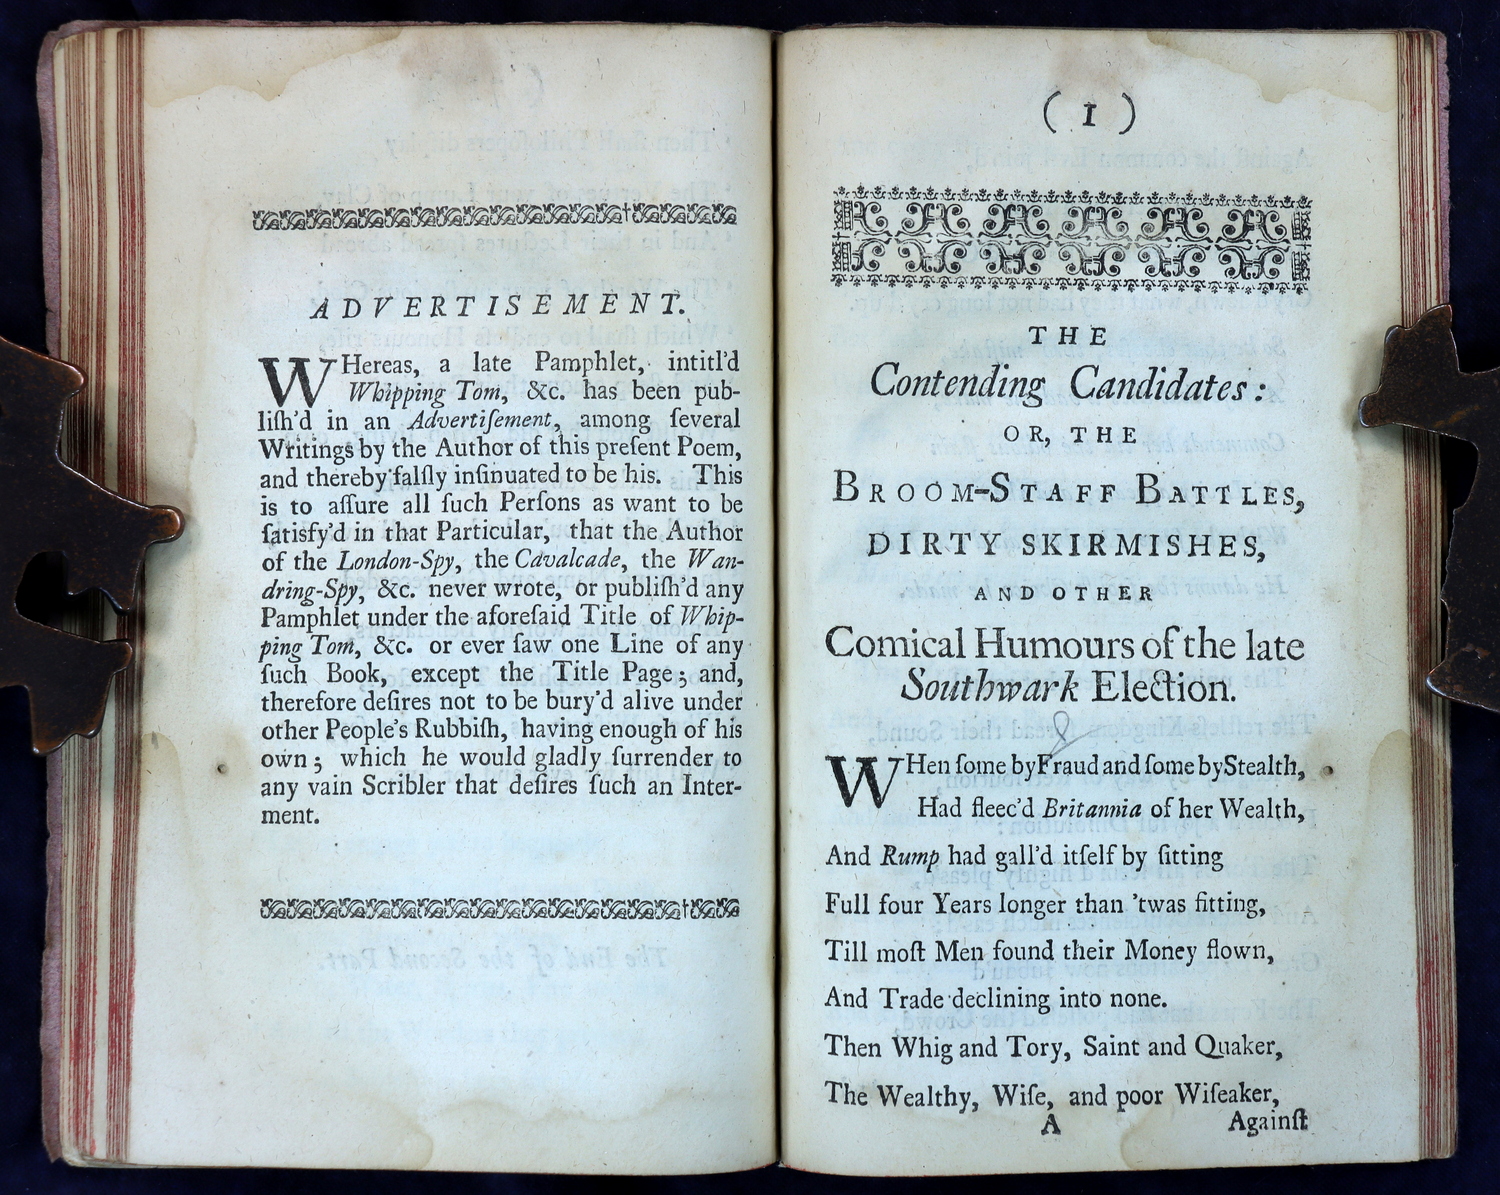 ADVERTISEMENT.
WHereas, a late Pamphlet, intitl'd
Whipping Tom, &c. has been pub-
liſh'd in an Advertiſement, among ſeveral
Writings by the Author of this preſent Poem,
and thereby falſly inſinuated to be his. This
is to aſſure all ſuch Perſons as want to be
ſatisfy'd in that Particular, that the Author
of the London-Spy, the Cavalcade, the Wan-
dring-Spy, &c. never wrote, or publiſh'd any
Pamphlet under the aforeſaid Title of Whip-
ping Tom, &c. or ever ſaw one Line of any
ſuch Book, except the Title Page; and,
therefore deſires not to be bury'd alive under
other People's Rubbiſh, having enough of his
own; which he would gladly ſurrender to
any vain Scribler that deſires ſuch an Inter-
ment.
( 1 )
THE
Contending Candidates:
OR, THE
BROOM-STAFF BATTLES,
DIRTY SKIRMISHES,
AND OTHER
Comical Humours of the late
Southwark Election.
WHen ſome by Fraud and ſome by Stealth,
Had fleec'd Britannia of her Wealth,
And Rump had gall'd itſelf by ſitting
Full four Years longer than 'twas fitting,
Till moſt Men found their Money flown,
And Trade declining into none.
Then Whig and Tory, Saint and Quaker,
The Wealthy, Wiſe, and poor Wiſeaker,
A Againſt